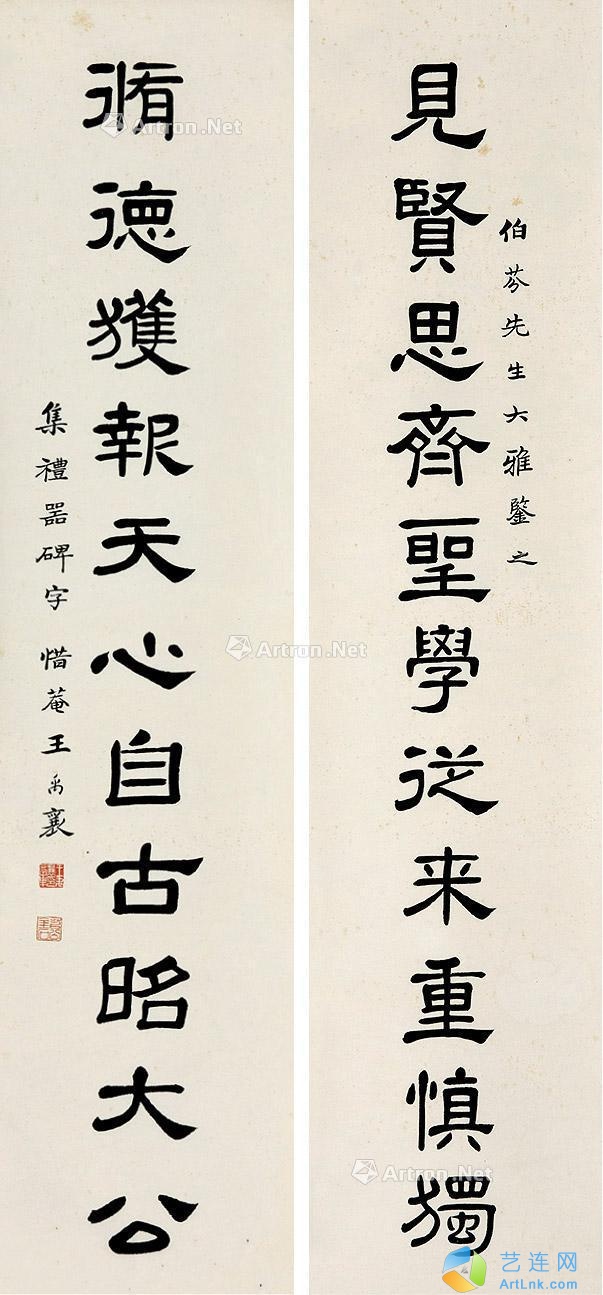 伯芬先生大雅鑒之
見賢思齊聖學從来重慎獨
脩德獲報天心自古昭大公
集禮器碑字 惜菴王禹襄
Artron.Net
Artron.Net
Artron.Net
Artron.Net
艺连网
ArtLnk.com